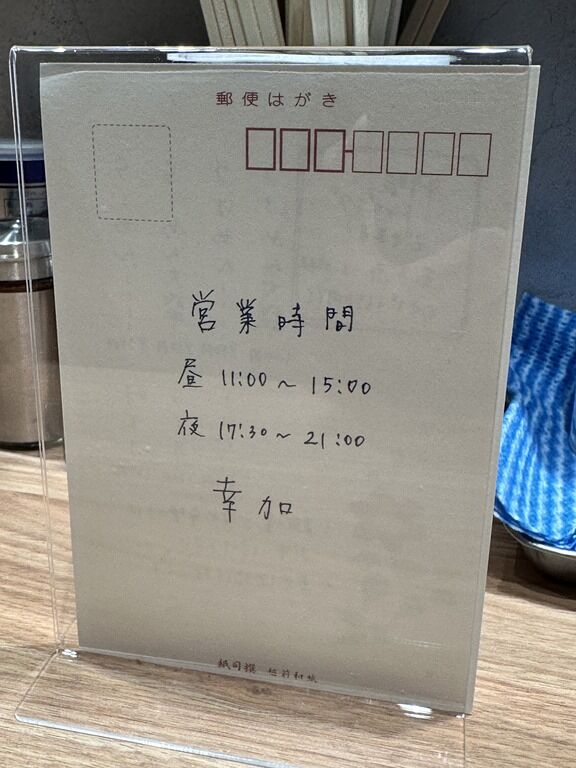 郵便はがき
営業時間
昼 11:00～15:00
夜 17:30～21:00
幸加
紙司撰 越前和紙